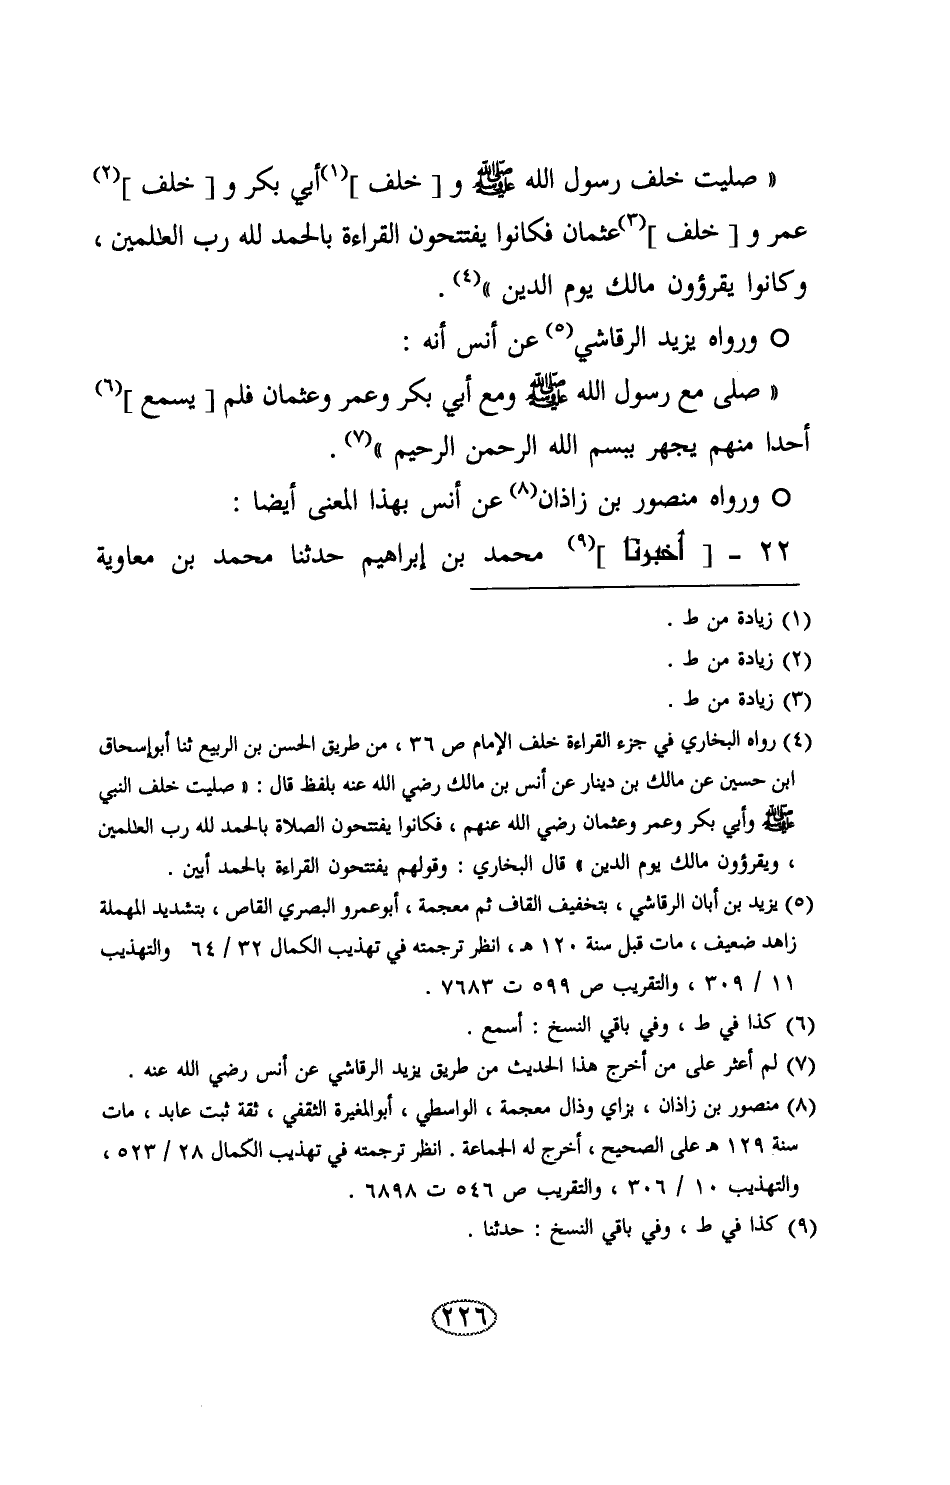 « صليت خلف رسول الله ﷺ و [ خلف ](١)أبي بكر و [ خلف ](٢)
عمر و [ خلف ](٣)عثمان فكانوا يفتتحون القراءة بالحمد لله رب العٰلمين ،
وكانوا يقرؤون مالك يوم الدين »(٤) .
○ ورواه يزيد الرقاشي(٥) عن أنس أنه :
« صلى مع رسول الله ﷺ ومع أبي بكر وعمر وعثمان فلم [ يسمع ](٦)
أحدا منهم يجهر ببسم الله الرحمن الرحيم »(٧) .
○ ورواه منصور بن زاذان(٨) عن أنس بهذا المعنى أيضا :
٢٢ - [ أخبرنا ](٩) محمد بن إبراهيم حدثنا محمد بن معاوية
(١) زيادة من ط .
(٢) زيادة من ط .
(٣) زيادة من ط .
(٤) رواه البخاري في جزء القراءة خلف الإمام ص ٣٦ ، من طريق الحسن بن الربيع ثنا أبوإسحاق
ابن حسين عن مالك بن دينار عن أنس بن مالك رضي الله عنه بلفظ قال : « صليت خلف النبي
ﷺ وأبي بكر وعمر وعثمان رضي الله عنهم ، فكانوا يفتتحون الصلاة بالحمد لله رب العٰلمين
، ويقرؤون مالك يوم الدين » قال البخاري : وقولهم يفتتحون القراءة بالحمد أبين .
(٥) يزيد بن أبان الرقاشي ، بتخفيف القاف ثم معجمة ، أبوعمرو البصري القاص ، بتشديد المهملة
زاهد ضعيف ، مات قبل سنة ١٢٠ هـ ، انظر ترجمته في تهذيب الكمال ٣٢ / ٦٤ والتهذيب
١١ / ٣٠٩ ، والتقريب ص ٥٩٩ ت ٧٦٨٣ .
(٦) كذا في ط ، وفي باقي النسخ : أسمع .
(٧) لم أعثر على من أخرج هذا الحديث من طريق يزيد الرقاشي عن أنس رضي الله عنه .
(٨) منصور بن زاذان ، بزاي وذال معجمة ، الواسطي ، أبوالمغيرة الثقفي ، ثقة ثبت عابد ، مات
سنة ١٢٩ هـ على الصحيح ، أخرج له الجماعة . انظر ترجمته في تهذيب الكمال ٢٨ / ٥٢٣ ،
والتهذيب ١٠ / ٣٠٦ ، والتقريب ص ٥٤٦ ت ٦٨٩٨ .
(٩) كذا في ط ، وفي باقي النسخ : حدثنا .
٢٢٦